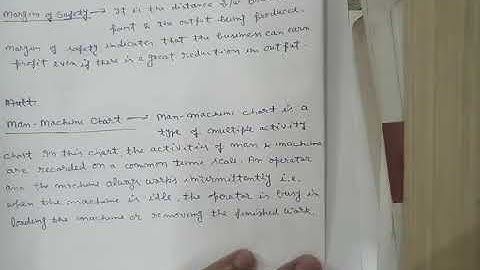 Margin of Safety → It is the distance b/w
point & the output being produced.
margin of safety indicates that the business can earn
profit even if there is a great reduction in output.
Man-Machine Chart → Man-machine chart is a
type of multiple activity
chart. In this chart the activities of man & machine
are recorded on a common time scale. An operator
and the machine always works intermittently i.e.
when the machine is idle, the operator is busy in
loading the machine or removing the finished work.